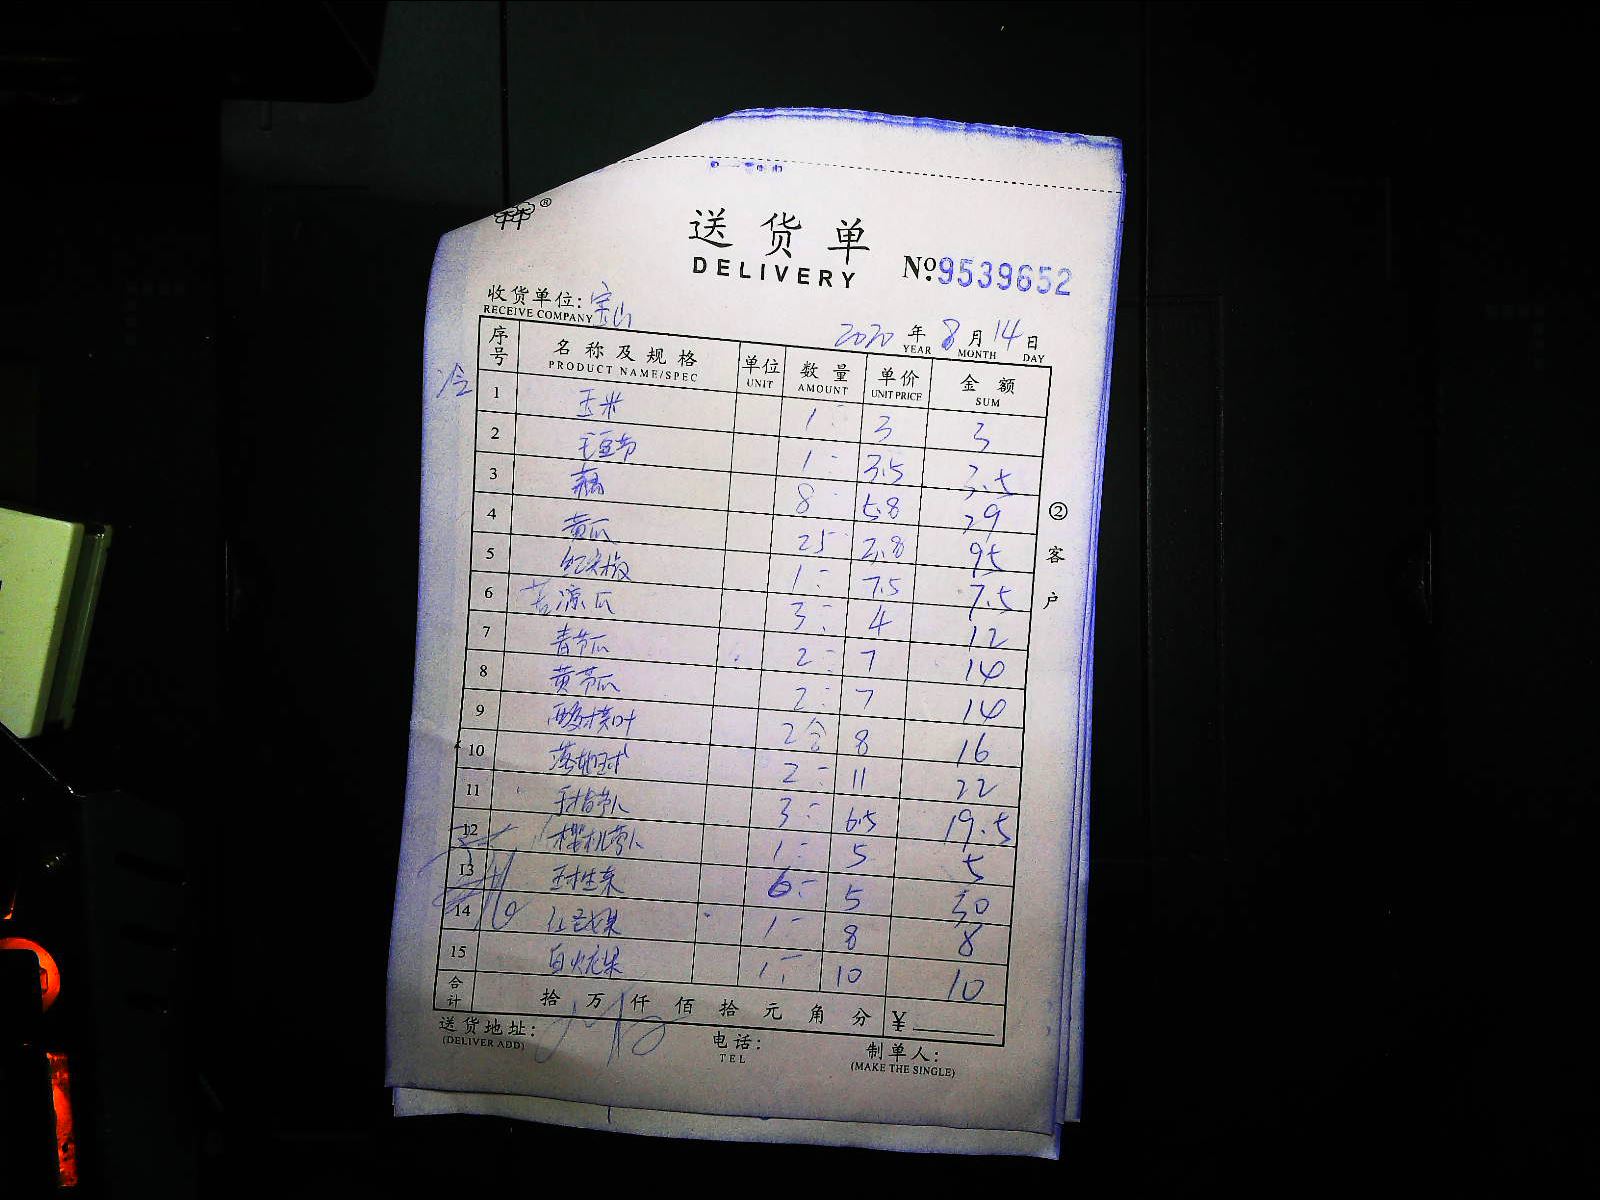 送货单
DELIVERY
№9539652
收货单位: 宝山
RECEIVE COMPANY
2020 年 8 月 14 日
YEAR MONTH DAY
序号 名称及规格 单位 数量 单价 金额
PRODUCT NAME/SPEC UNIT AMOUNT UNIT PRICE SUM
冷
1 玉米 1 3 3
2 毛豆节 1 3.5 3.5
3 藕 8 5.8 29
4 黄瓜 25 3.8 95
5 红尖椒 1 7.5 7.5
6 苦凉瓜 3 4 12
7 青节瓜 2 7 14
8 黄节瓜 2 7 14
9 2合 8 16
10 2 11 22
11 手指萝卜 3 6.5 19.5
12 樱桃萝卜 1 5 5
13 球生菜 6 5 30
14 1 8 8
15 白火龙果 1 10 10
合计 拾 万 仟 佰 拾 元 角 分 ¥
送货地址:
(DELIVER ADD)
电话:
TEL
制单人:
(MAKE THE SINGLE)
②客户